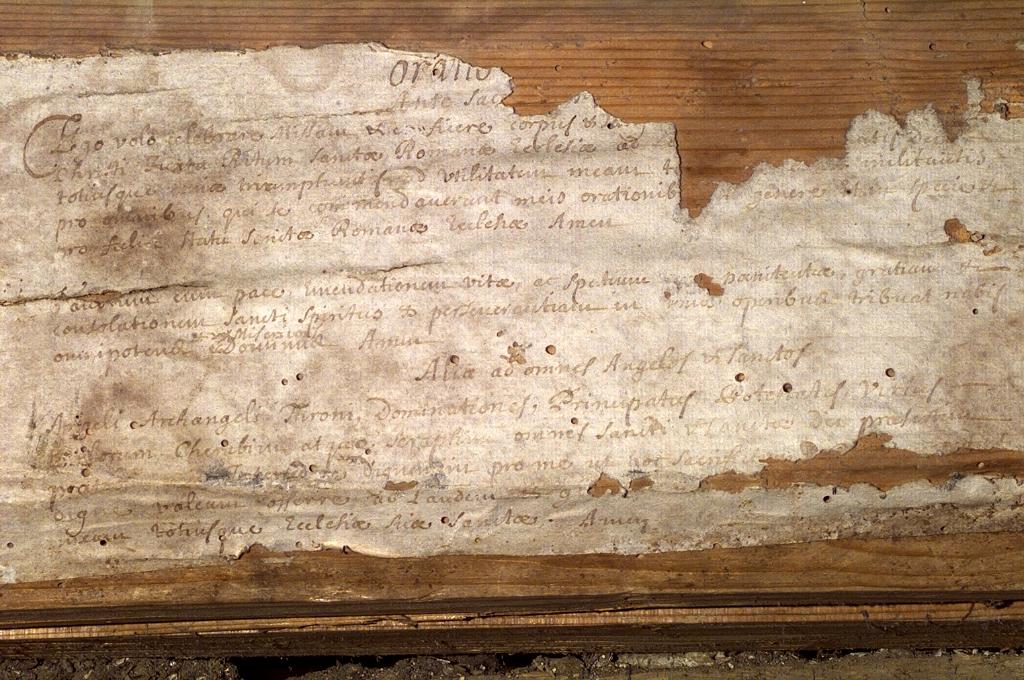 Oratio
Ante Sac
Ego volo celebrare Missam et conficere corpus et
Christi Juxta Ritum Sanctæ Romanæ Ecclesiæ ad
totiusque triumphantis ad utilitatem meam militantis
pro omnibus, qui se commendaverunt meis orationib in genere et in specie et
pro felici statu Sanctæ Romanæ Ecclesiæ Amen
Gaudium cum pace, emendationem vitæ, ac spatium pœnitentiæ, gratiam et
consolationem Sancti Spiritus et perseverantiam in operibus tribuat nobis
omnipotens et misericors Dominus Amen
Alia ad omnes Angelos et Sanctos
Angeli Archangeli Throni Dominationes, Principatus Potestates Virtutes
cœlorum Cherubim atque Seraphim omnes Sancti et Sanctæ Dei præsertim
Intercedere dignamini pro me ut hoc Sacrif
valeam offerre ad Laudem
totiusque Ecclesiæ suæ Sanctæ. Amen